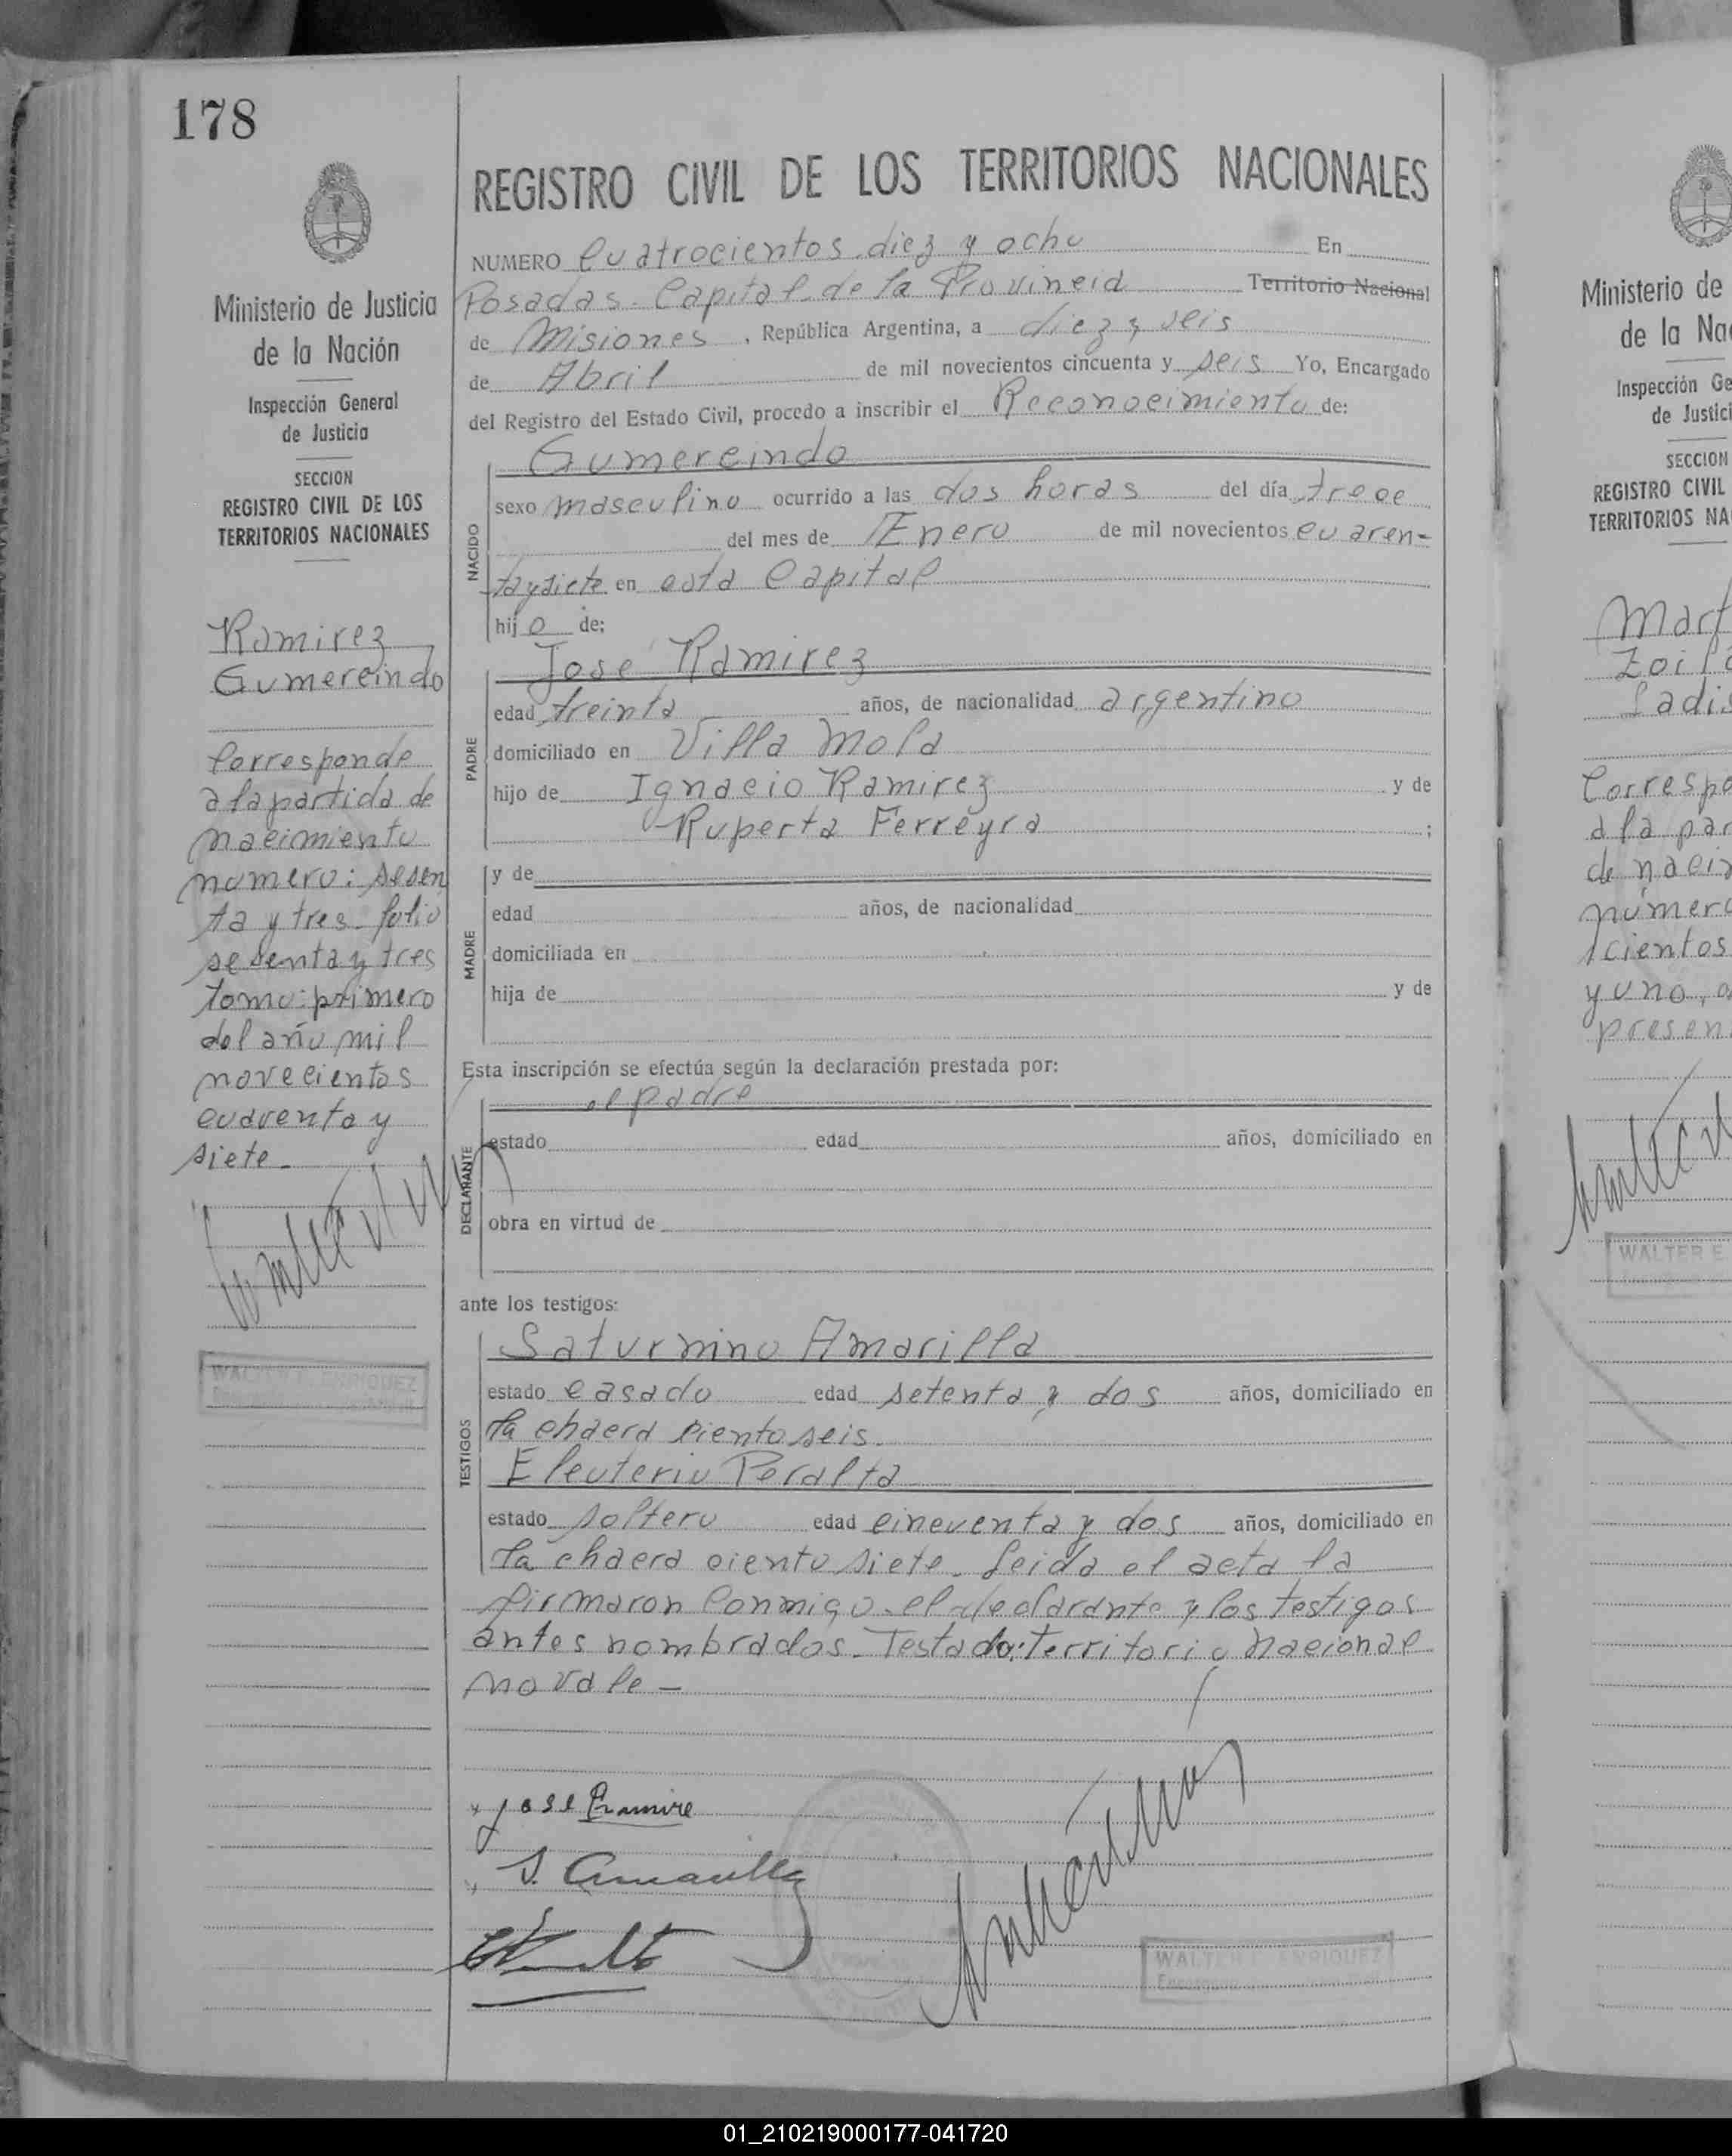 178
Ministerio de Justicia
de la Nación
Inspección General
de Justicia
SECCION
REGISTRO CIVIL DE LOS
TERRITORIOS NACIONALES
Ramirez,
Gumercindo
Corresponde
a la partida de
nacimiento
numero: sesen
ta y tres. folio
sesenta y tres
tomo: primero
del año mil
novecientos
cuarenta y
siete.
WALTER E. ENRIQUEZ
REGISTRO CIVIL DE LOS TERRITORIOS NACIONALES
NUMERO Cuatrocientos diez y ocho En
Posadas. Capital de la Provincia Territorio Nacional
de Misiones, República Argentina, a diez y seis
de Abril de mil novecientos cincuenta y seis Yo, Encargado
del Registro del Estado Civil, procedo a inscribir el Reconocimiento de:
NACIDO
Gumercindo
sexo masculino ocurrido a las dos horas del día trece
del mes de Enero de mil novecientos cuaren-
taysiete en esta Capital
hijo de:
PADRE
José Ramirez
edad treinta años, de nacionalidad argentino
domiciliado en Villa Mola
hijo de Ignacio Ramirez y de
Ruperta Ferreyra ;
MADRE
y de
edad años, de nacionalidad
domiciliada en
hija de y de
Esta inscripción se efectúa según la declaración prestada por:
DECLARANTE
el padre
estado edad años, domiciliado en
obra en virtud de
ante los testigos:
TESTIGOS
Saturnino Amarilla
estado casado edad setenta y dos años, domiciliado en
la chacra ciento seis.
Eleuterio Peralta
estado soltero edad cincuenta y dos años, domiciliado en
la chacra ciento siete. Leida el acta la
firmaron conmigo el declarante y los testigos
antes nombrados. Testado: Territorio Nacional
no vale -
x José Ramire
x S. Amarilla
WALTER E. ENRIQUEZ
Encargado
Ministerio de
de la Na
Inspección Ge
de Justici
SECCION
REGISTRO CIVIL
TERRITORIOS NA
Mart
Zoila
Ladis
Correspo
a la par
de naci
número
cientos
y uno, a
presen
WALTER E
01_210219000177-041720